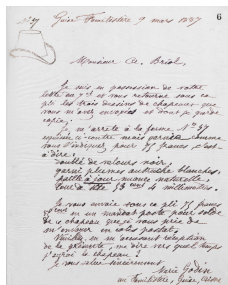 N° 57 Guise Familistère 9 mars 1887
6
Monsieur A. Briol,
Je suis en possession de votre
lettre du 7 ct et vous retourne sous ce
pli les trois dessins de chapeaux que
vous m'avez envoyés et dont j'ai gardé
copie.
Je m'arrête à la forme N° 57
ci-contre mais garnie comme
vous l'indiquez pour 75 francs c'est
à dire:
doublé de velours noir,
garni plumes autruche blanches,
paille à jour nuance naturelle,
Tour de tête 58 cent 4 millimètres.
Je vous envoie sous ce pli 75 francs
en un mandat poste pour solde
de ce chapeau que je vous prie de
m'envoyer en colis postal.
Veuillez, en m'accusant réception
de la présente, me dire vers quel temps
j'aurai le chapeau.
Je vous salue sincèrement
Marie Godin
au Familistère, Guise, Aisne